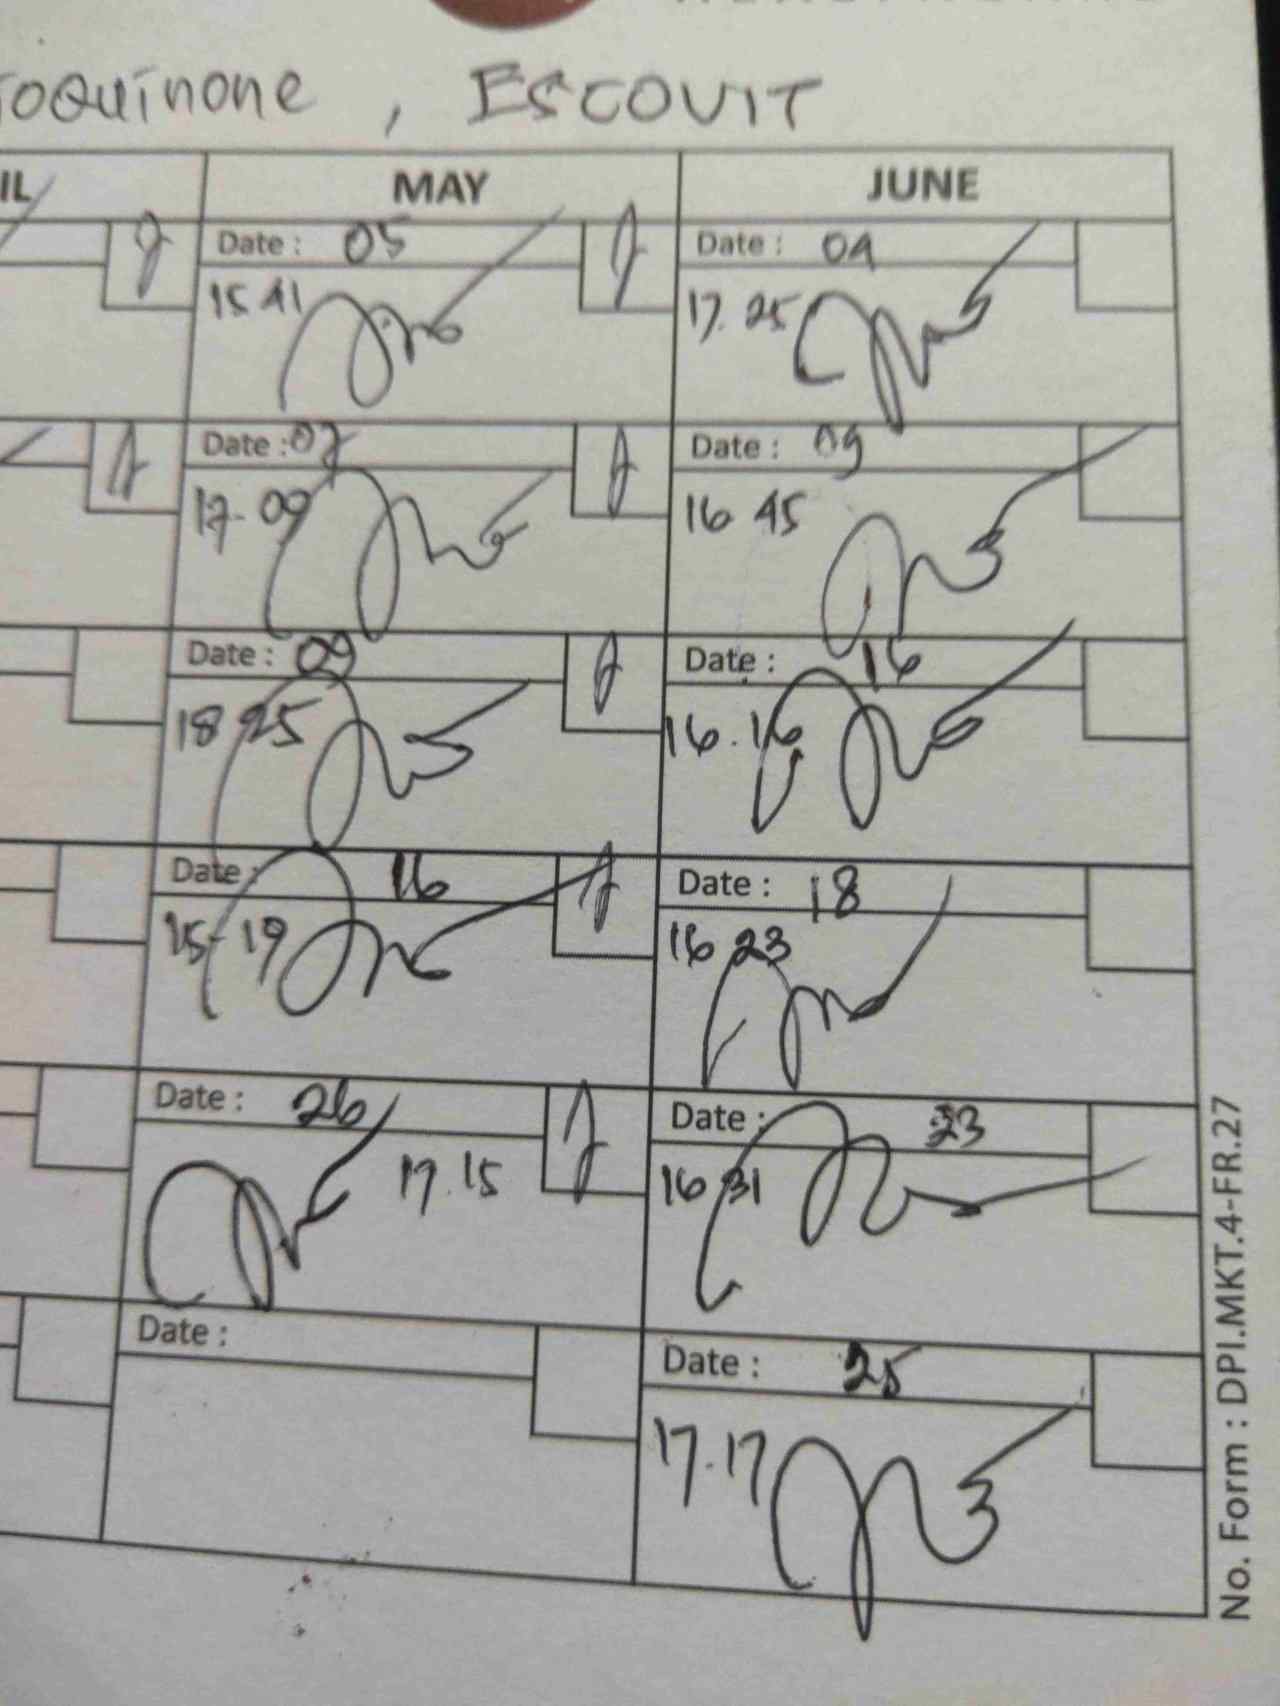 , ESCOVIT
MAY JUNE
Date : 05 Date : 04
15 41 17. 25
Date : 07 Date : 09
17- 09 16 45
Date : 09 Date : 16
18 25 16.16
Date : 16 Date : 18
15- 19 16 23
Date : 26 Date : 23
17.15 16 31
Date : Date : 25
17.17
No. Form : DPI.MKT.4-FR.27